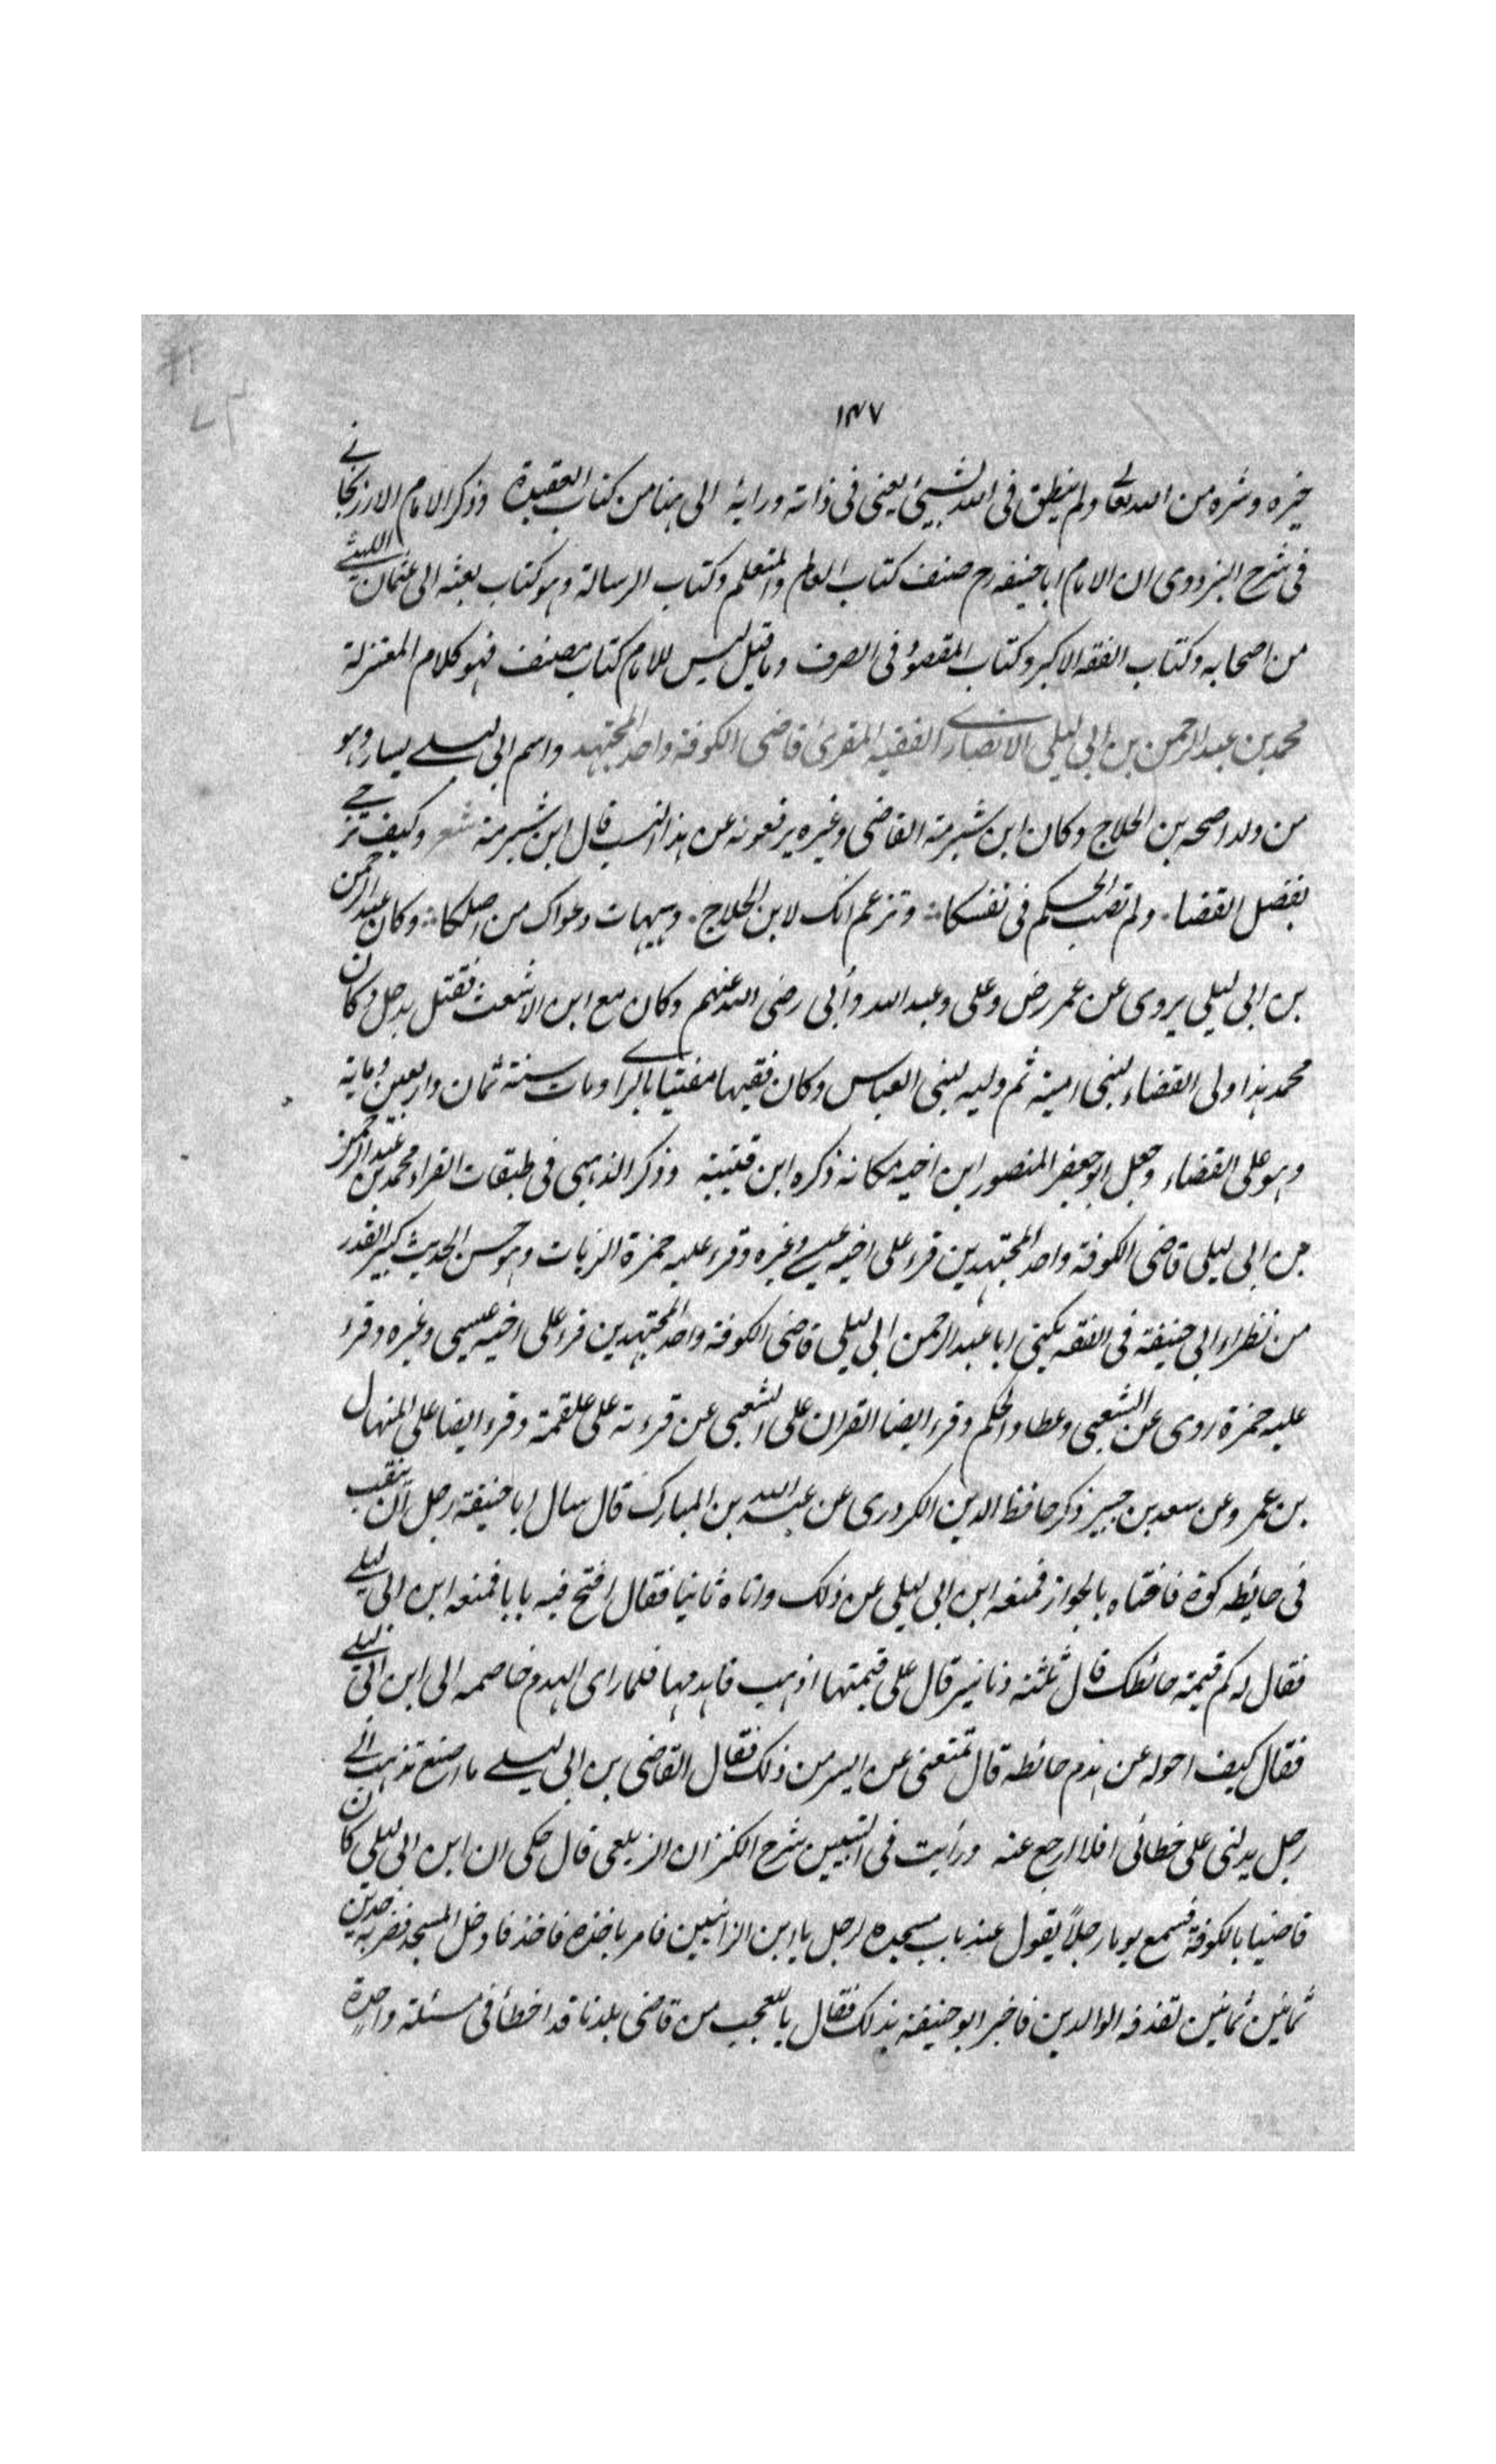 ١٤٧
خيره وشره من الله تعالى ولم ينطق فى الله بشيئ يعنى فى ذاته ورايه الى هنا من كتاب العقيدة وذكر الامام الارزنجانے
فى شرح البزدوى ان الامام ابا حنيفه رح صنف كتاب العالم والمتعلم وكتاب الرسالة وهو كتاب بعثه الى عثمان الليثے
من اصحابه وكتاب الفقه الاكبر وكتاب المقصود فى الصرف وما قيل ليس للامام كتاب مصنف فهو كلام المعتزلة
محمد بن عبد الرحمن بن ابى ليلى الانصارے الفقيه المقرئ قاضى الكوفة واحد المجتهد واسم ابى ليلے يسار وهو
من ولد اصحه بن الجلاج وكان ابن شبرمة القاضى وغيره يرفعونه عن هذا النسب قال ابن شبرمة شعر وكيف ترجے
بفضل القضا ولم تصب الحكم فى نفسكا وتزعم انك لابن الجلاج وهيهات دعواك من اصلكا وكان عبد الرحمن
بن ابى ليلى يروى عن عمر رض وعلى وعبد الله وأبى رضى الله عنهم وكان مع ابن الاشعث فقتل بدجل وكان
محمد هذا ولى القضاء لبنى امية ثم وليه لبنى العباس وكان فقيها مفتيا بالراے ومات سنة ثمان واربعين وماية
وهو على القضاء وجعل ابو جعفر المنصور ابن اخيه مكانه ذكره ابن قتيبة وذكر الذهبى فى طبقات القراء محمد بن عبد الرحمن
بن ابى ليلى قاضى الكوفة واحد المجتهدين قرء على اخيه عيسے وغيره وقرء عليه حمزة الزيات وهو حسن الحديث كبير القدر
من نظراء ابى حنيفة فى الفقه يكنى ابا عبد الرحمن ابى ليلى قاضى الكوفة واحد المجتهدين قرء على اخيه عيسى وغيره وقرء
عليه حمزة روى عن الشعبى وعطا والحكم وقرء ايضا القران على الشعبى عن قرءته على علقمة وقرء ايضا على المنهال
بن عمر وعن سعد بن جبير ذكر حافظ الدين الكردرى عن عبد الله بن المبارك قال سال ابا حنيفة رجل ان ينقب
فى حايطه كوة فافتاه بالجواز فمنعه ابن ابى ليلى عن ذلك واتاه ثانيا فقال افتح فيه بابا فمنعه ابن ابى ليلے
فقال له كم قيمة حائطك قال ثلثة دنانير قال على قيمتها اذهب فاهدمها فلما راى الهدم خاصمه الى ابن ابى ليلے
فقال كيف احوله عن هدم حائطه قال تمنعنى عن ايسر من ذلك فقال القاضى بن ابى ليلے ما اصنع تذهب الے
رجل يدلنى على خطائى افلا ارجع عنه ورأيت فى التبيين شرح الكنز ان الزيلعى قال حكى ان ابن ابى ليلى كان
قاضيا بالكوفة فسمع يوما رجلاً يقول عند باب مسجده لرجل يا ابن الزانيين فامر باخذه فاخذ فادخل المسجد فضربه حدين
ثمانين ثمانين لقذفه الوالدين فاخبر ابو حنيفة بذلك فقال يا للعجب من قاضى بلدنا قد اخطأ فى مسئلة واحدة